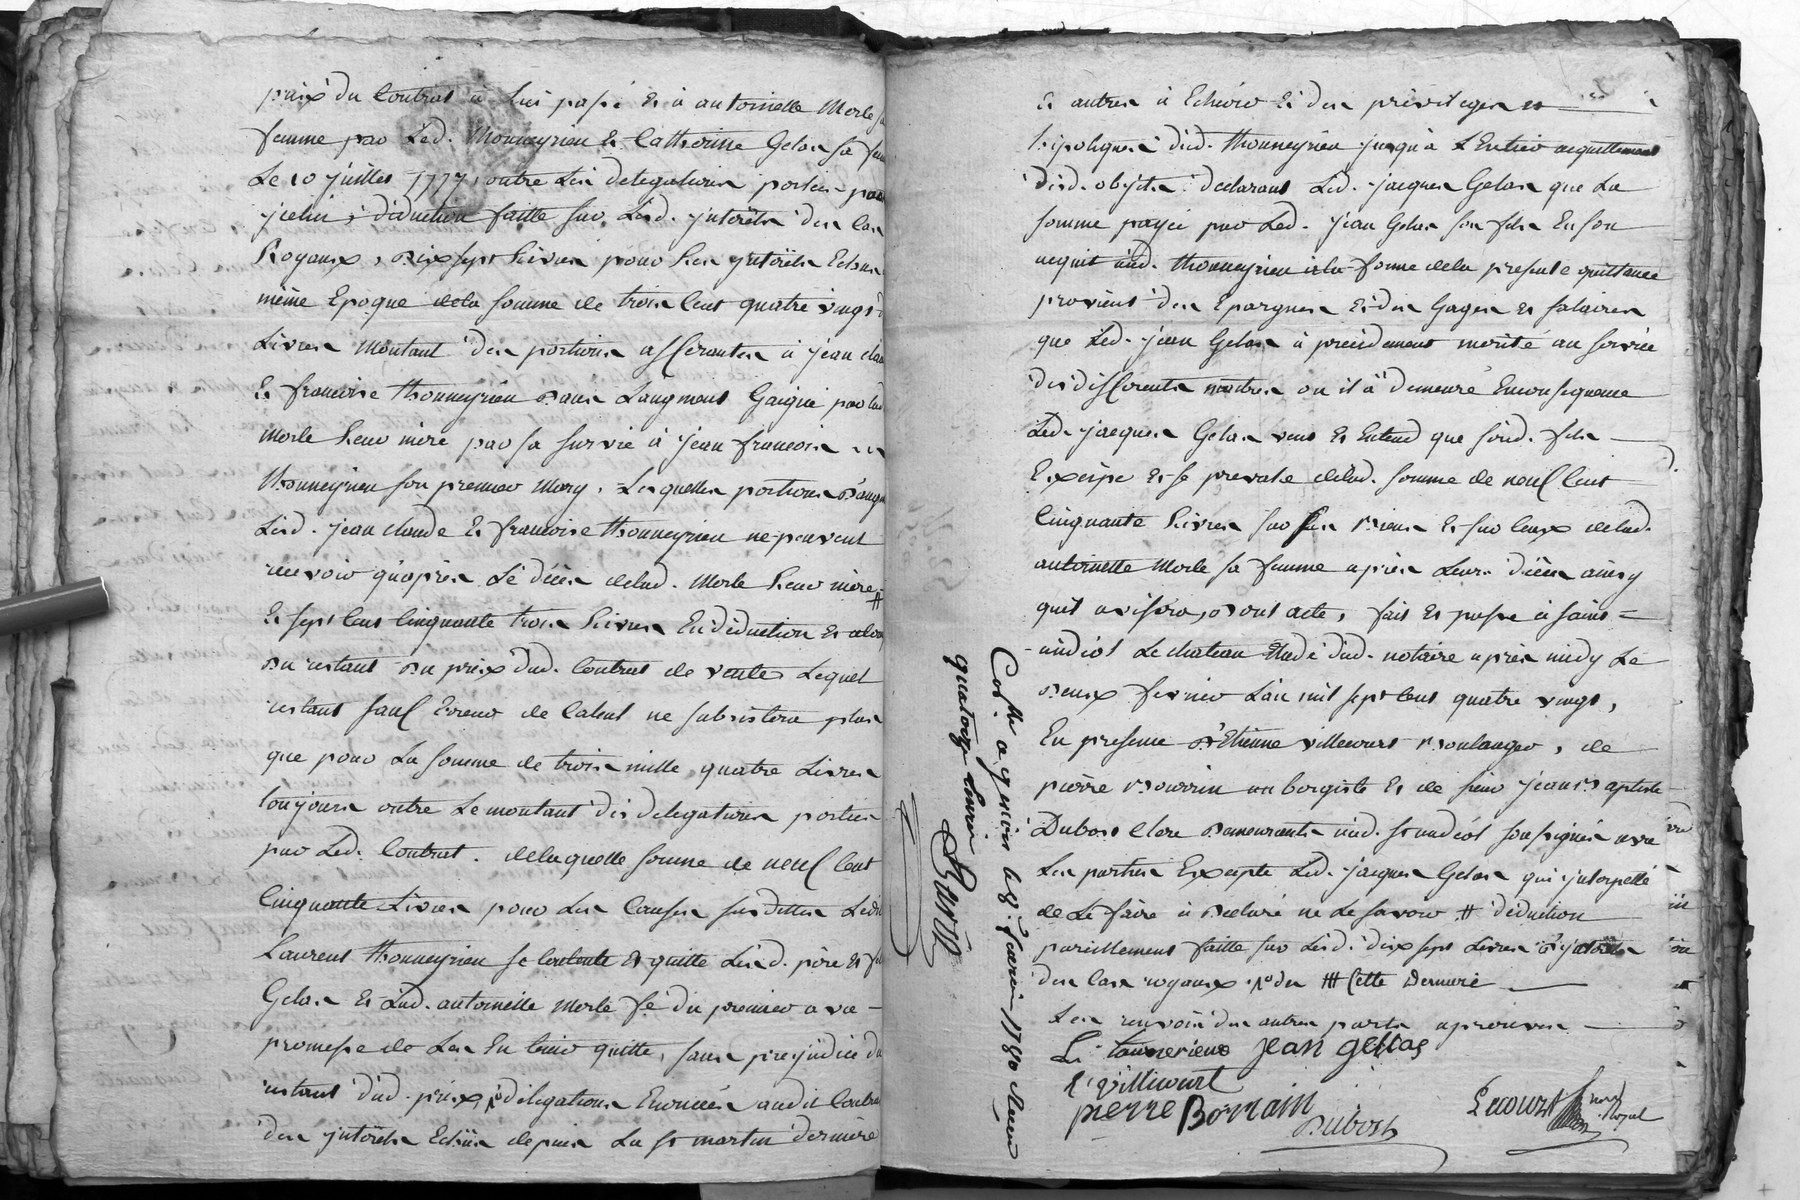 prix du Contrat à lui passé Et à antoinette Morle sa
femme par Led. thonneyrieu Et Catherine Gelas sa fem
Le 10 juillet 1777, outre Les delegations portées par
jcelui, déduction faitte sur Lesd. jnterêts des Cas
Royaux, Dixsept Livres pour Les jnterêts Echus
même Epoque dela somme de trois Cent quatre vingt
Livres Montant des portions afferantes à jean claude
Et francoise thonneyrieu Dans L'augment Gaigné par lad
Morle Leur mere par sa survie à jean francois
thonneyrieu son premier Mary, Lesquelles portions D'augm
Lesd. jean claude Et francoise thonneyrieu ne peuvent
recevoir qu'après Le décès delad. Morle Leur mère #
Et sept Cent Cinquante trois Livres En déduction Et
Du restant Du prix dud. Contrat de vente, Lequel
restant sauf Erreur de Calcul ne subsistera plus
que pour La somme de trois mille quatre Livres
toujours outre Le montant des delegations portées
par Led. Contrat. delaquelle somme de neuf Cent
Cinquante Livres pour Les Causes susdittes Ledit
Laurent thonneyrieu se Contente Et quitte Lesd. père Et fils
Gelas Et Lad. antoinette Morle fe du premier avec
promesse de Les En tenir quitte, sans prejudice du
restant dud. prix, delegations Enoncées audit Contrat
des jnterêts Echus depuis La st martin dernière
Et autres à Echeoir Et des privileges Et
hipotiques dud. thonneyrieu jusqu'à L'Entier acquittement
desd. objets: declarant Led. jacques Gelas que La
somme payée par Led. jean Gelas son fils En son
acquit aud. thonneyrieu à la forme dela presente quittance
provient des Epargnes Et des Gages Et salaires
que Led. jean Gelas à précédement merité au service
des differents maitres ou il à demeuré Enconsequence
Led. jacques Gelas veut Et Entend que sond. fils
Excipe Et se prevale delad. somme de neuf Cent
Cinquante Livres sur ses Biens Et sur Ceux delad.
antoinette Morle sa femme après Leurs décès ainsy
quil avisera, Dont acte, fait Et passé à saint=
andéol Le chateau Etude dud. notaire après midy Le
Deux fevrier L'an mil sept Cent quatre vingt,
En presence D'Etienne villecourt Boulanger, de
pierre Bourrin aubergiste Et de sieur jean Baptiste
Dubost Clerc Demeurants aud. st andéol soussignés avec
Les parties Excepté Led. jacques Gelas qui jnterpellé
de Le faire à Declaré ne Le savoir # déduction
pareillement faitte sur Lesd. dix sept Livres d'jnterêts
des Cas royaux. # Cette Derniere
Les renvois des autres parts aprouvés
L. tonnerieux jean gellas
E villicourt
pierre Borrain
Dubost
Lecourt
not. Royal
Con.lle a givors le 8. fevrier 1780 Recu
quatorze livres